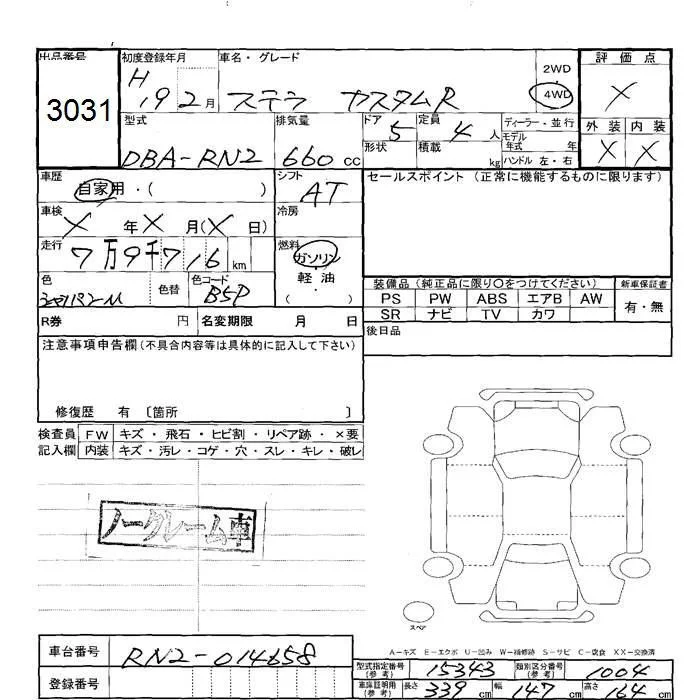 出品番号 初度登録年月 車名・グレード 評価点
3031 H 19 2月 ステラ カスタムR 2WD 4WD X
型式 排気量 ドア 定員 ディーラー・並行 外装 内装
DBA-RN2 660cc 5 4人 モデル年式 年 X X
形状 積載 kg ハンドル 左・右
車歴 シフト セールスポイント (正常に機能するものに限ります)
自家用・( ) AT
車検 冷房
X年X月(X日)
走行 燃料
7万9千716km ガソリン
色 色替 色コード 軽油 装備品 (純正品に限り○をつけてください) 新車保証書
B5P (・) PS PW ABS エアB AW 有・無
R券 円 名変期限 月 日 SR ナビ TV カワ
注意事項申告欄 (不具合内容等は具体的に記入して下さい) 後日品
修復歴 有 〔箇所 〕
検査員 FW キズ・飛石・ヒビ割・リペア跡・×要
記入欄 内装 キズ・汚レ・コゲ・穴・スレ・キレ・破レ
ノークレーム車
スペア
A−キズ E−エクボ U−凹み W−補修跡 S−サビ C−腐食 XX−交換済
車台番号 RN2-014658 型式指定番号(参考) 15343 類別区分番号(参考) 1004
登録番号 車庫証明用(参考) 長さ 339cm 幅 147cm 高さ 164cm